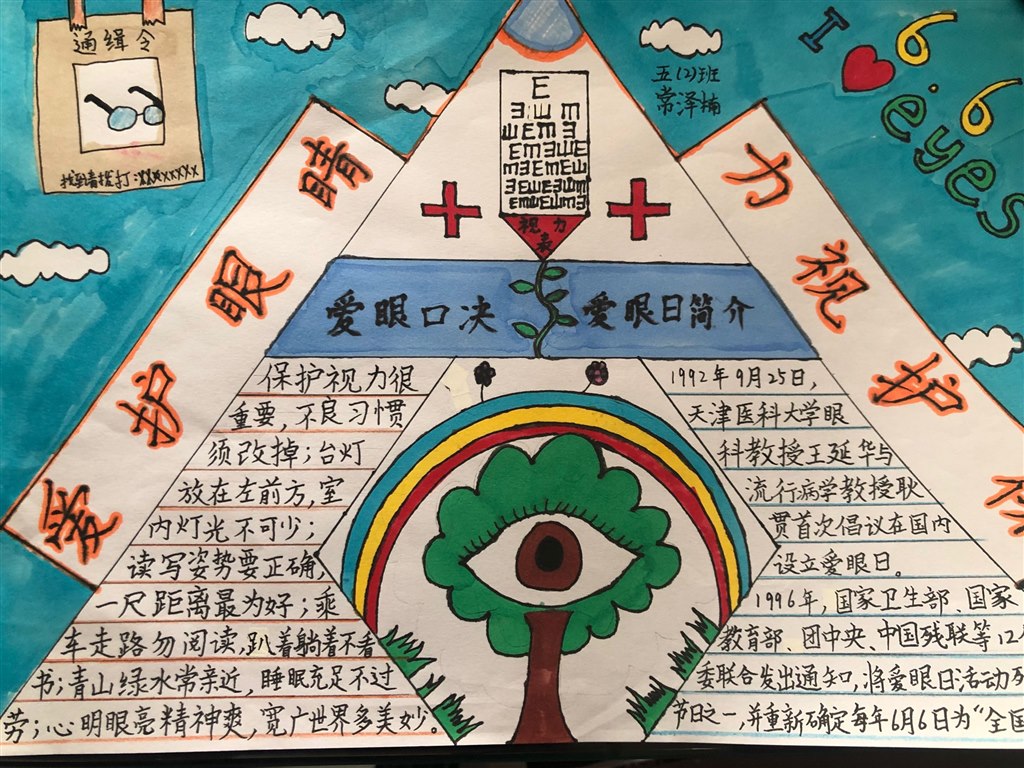 通缉令
捡到者拨打:XXXXXXXXX
五(2)班
常泽楠
I
6.6
eyes
爱护眼睛
力视护保
E
ƎШM
ШEMƎ
EMƎШE
MƎEMEШ
视力
表
爱眼口决
爱眼日简介
保护视力很
重要,不良习惯
须改掉;台灯
放在左前方,室
内灯光不可少;
读写姿势要正确,
一尺距离最为好;乘
车走路勿阅读,趴着躺着不看
书;青山绿水常亲近,睡眠充足不过
劳;心明眼亮精神爽,宽广世界多美妙。
1992年9月25日,
天津医科大学眼
科教授王延华与
流行病学教授耿
贯首次倡议在国内
设立爱眼日。
1996年,国家卫生部、国家
教育部、团中央、中国残联等12个
委联合发出通知,将爱眼日活动列
节日之一,并重新确定每年6月6日为“全国